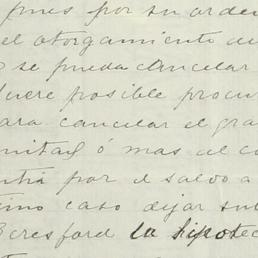 pues por su orde
el otorgamiento de
se pueda cancelar
fuere posible procu
para cancelar el gra
mitad ó mas al co
por el saldo a
timo caso dejar sub
Beresford la hipotec